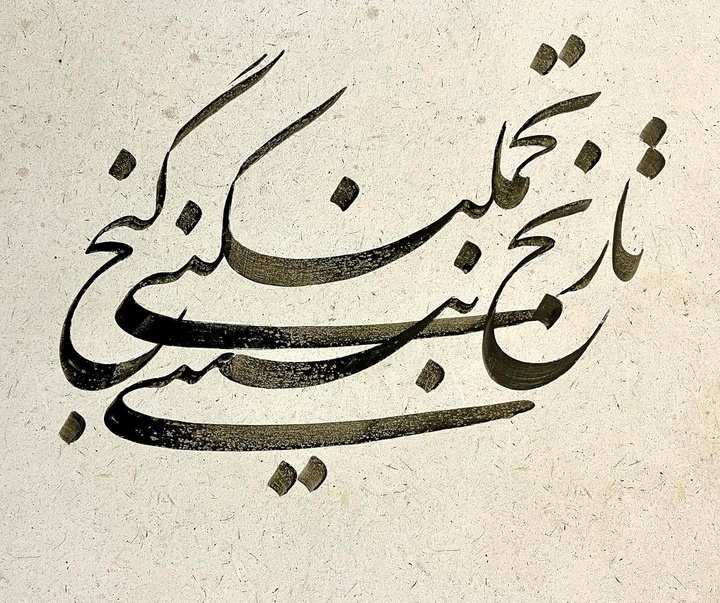 تا رنج تحمل نکنی گنج نبینی